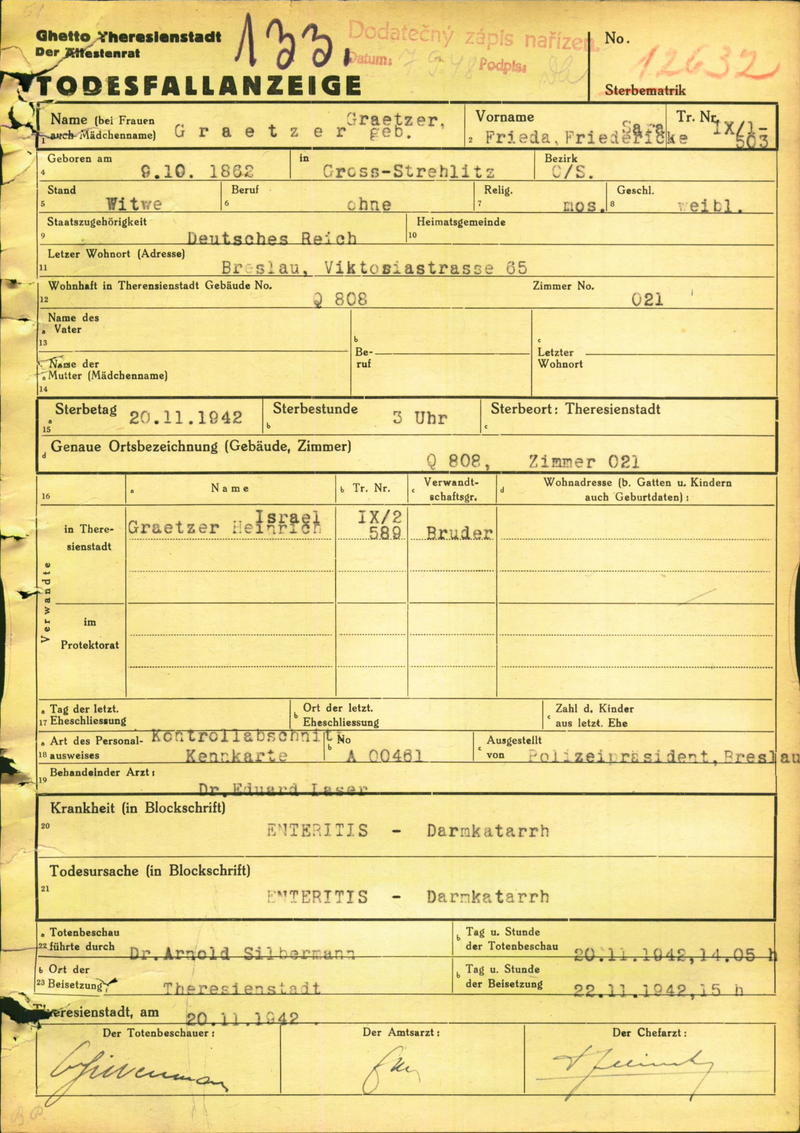 Ghetto Theresienstadt
Der Ältestenrat
133.
Dodatečný zápis nařízen.
Datum: Podpis:
No.
12632
TODESFALLANZEIGE
Sterbematrik
Name (bei Frauen auch Mädchenname) Graetzer geb. Graetzer,
1
Vorname Sara
2 Frieda, Friedericke
Tr. Nr. IX/1-
503
Geboren am
4 9.10. 1862
in Gross-Strehlitz
Bezirk C/S.
Stand
5 Witwe
Beruf
6 ohne
Relig.
7 mos.
Geschl.
8 weibl.
Staatszugehörigkeit
9 Deutsches Reich
Heimatsgemeinde
10
Letzer Wohnort (Adresse)
11 Breslau, Viktosiastrasse 65
Wohnhaft in Therensienstadt Gebäude No.
12 Q 808
Zimmer No. 021
Name des
a Vater
13
Name der
a Mutter (Mädchenname)
14
b
Be-
ruf
c
Letzter
Wohnort
Sterbetag 20.11.1942
a
15
Sterbestunde 3 Uhr
b
Sterbeort: Theresienstadt
c
Genaue Ortsbezeichnung (Gebäude, Zimmer)
d Q 808, Zimmer 021
16
a Name
b Tr. Nr.
c Verwandt-
schaftsgr.
d Wohnadresse (b. Gatten u. Kindern
auch Geburtdaten):
Verwandte
in There-
sienstadt
Israel
Graetzer Heinrich
IX/2
589
Bruder
im
Protektorat
a Tag der letzt.
17 Eheschliessung
b Ort der letzt.
Eheschliessung
c Zahl d. Kinder
aus letzt. Ehe
a Art des Personal-
18 ausweises
Kontrollabschnitt
Kennkarte
b No
A 00461
c Ausgestellt
von Polizeipräsident, Breslau
Behandelnder Arzt:
19 Dr. Eduard Laser
Krankheit (in Blockschrift)
20 ENTERITIS - Darmkatarrh
Todesursache (in Blockschrift)
21 ENTERITIS - Darmkatarrh
a Totenbeschau
22 führte durch Dr. Arnold Silbermann
b Tag u. Stunde
der Totenbeschau 20.11.1942, 14.05 h
b Ort der
23 Beisetzung Theresienstadt
b Tag u. Stunde
der Beisetzung 22.11.1942, 15 h
Theresienstadt, am 20.11.1942
Der Totenbeschauer:
Der Amtsarzt:
Der Chefarzt: